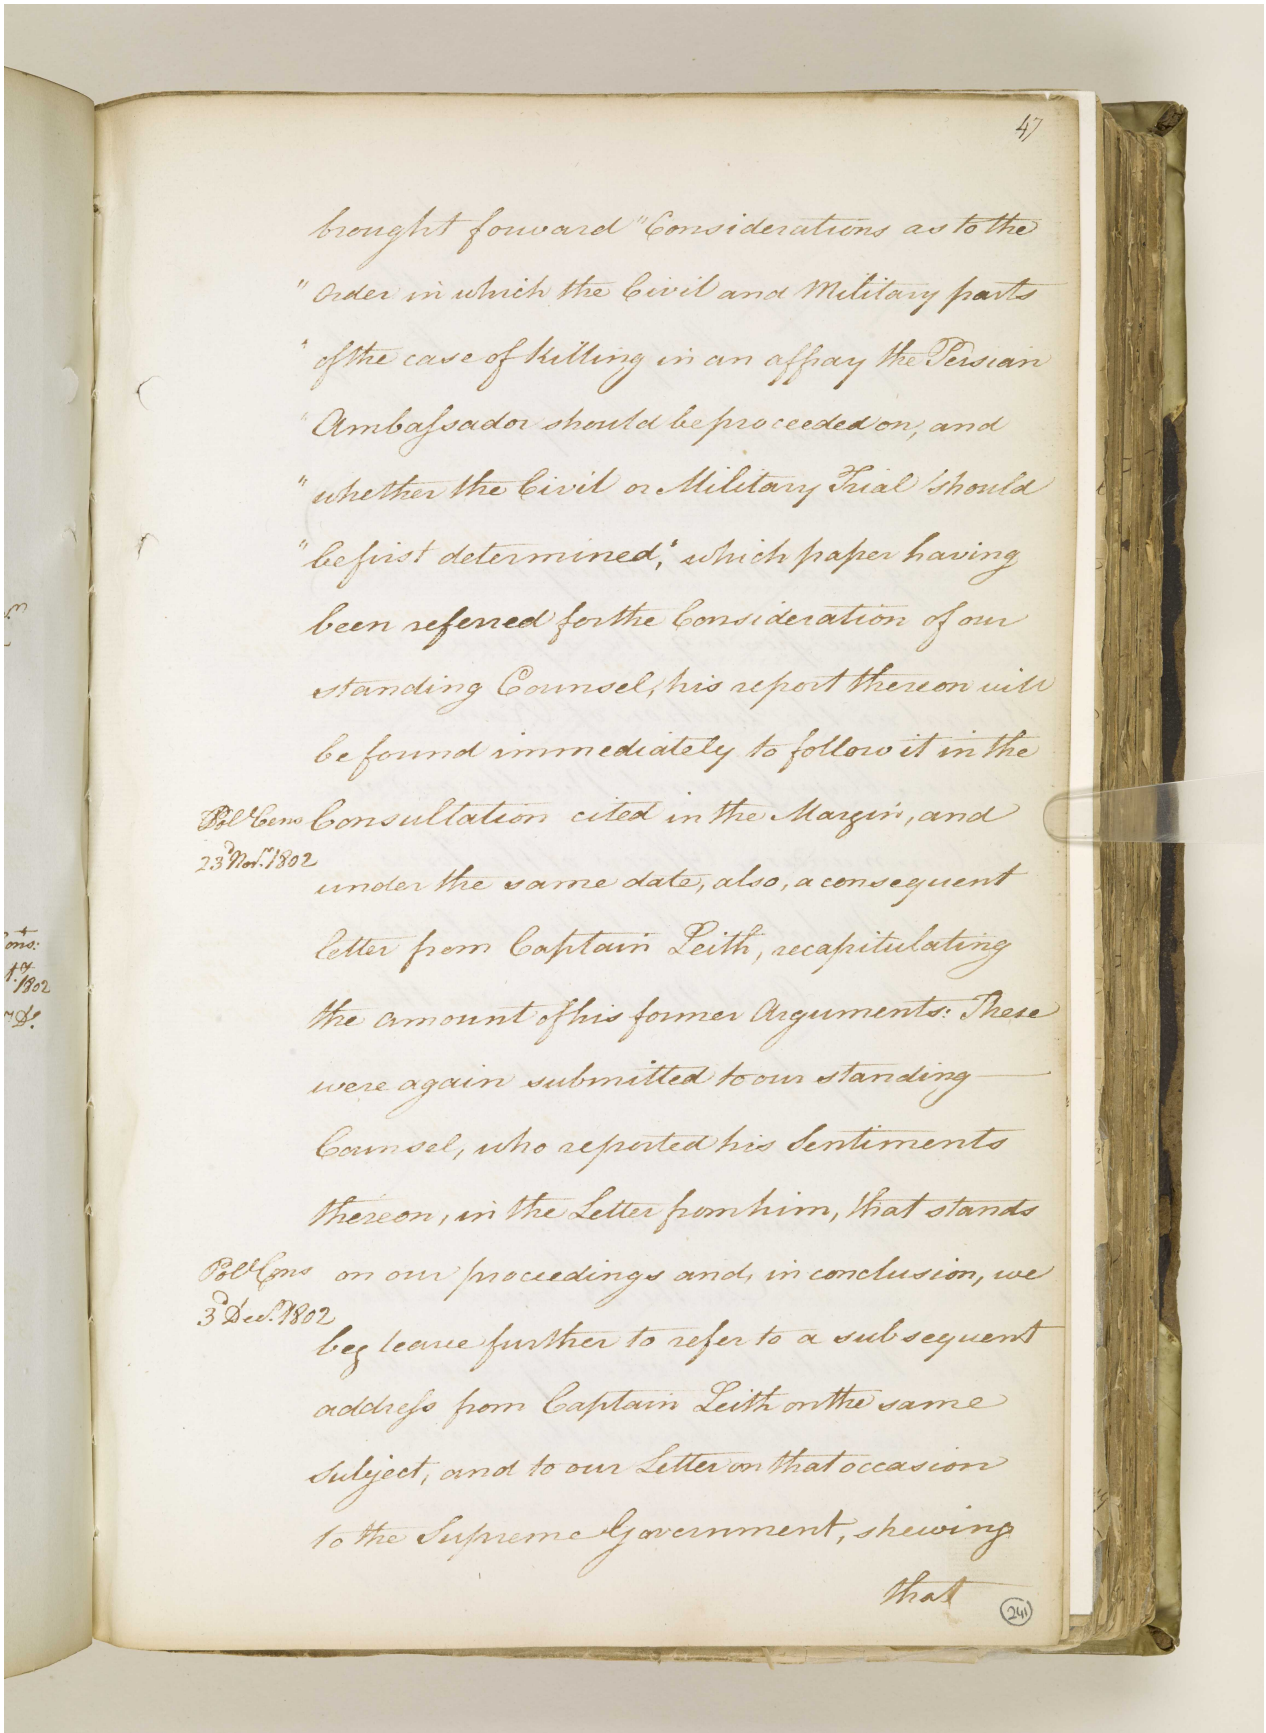 47
brought forward "Considerations as to the
" Order in which the Civil and Military parts
" of the case of killing in an affray the Persian
" Ambaſsador should be proceeded on, and
" whether the Civil or Military Trial should
" be first determined," which paper having
been referred for the Consideration of our
standing Counsel, his report thereon will
be found immediately to follow it in the
Pol Cons Consultation cited in the Margin, and
23d Novr. 1802
under the same date, also, a consequent
letter from Captain Leith, recapitulating
the amount of his former Arguments: These
were again submitted to our standing
Counsel, who reported his Sentiments
thereon, in the Letter from him, that stands
Poll Cons on our proceedings and, in conclusion, we
3d Decr. 1802
beg leave further to refer to a subsequent
addreſs from Captain Leith on the same
Subject, and to our Letter on that occasion
to the Supreme Government, shewing
that
241
ons:
1802
Do.